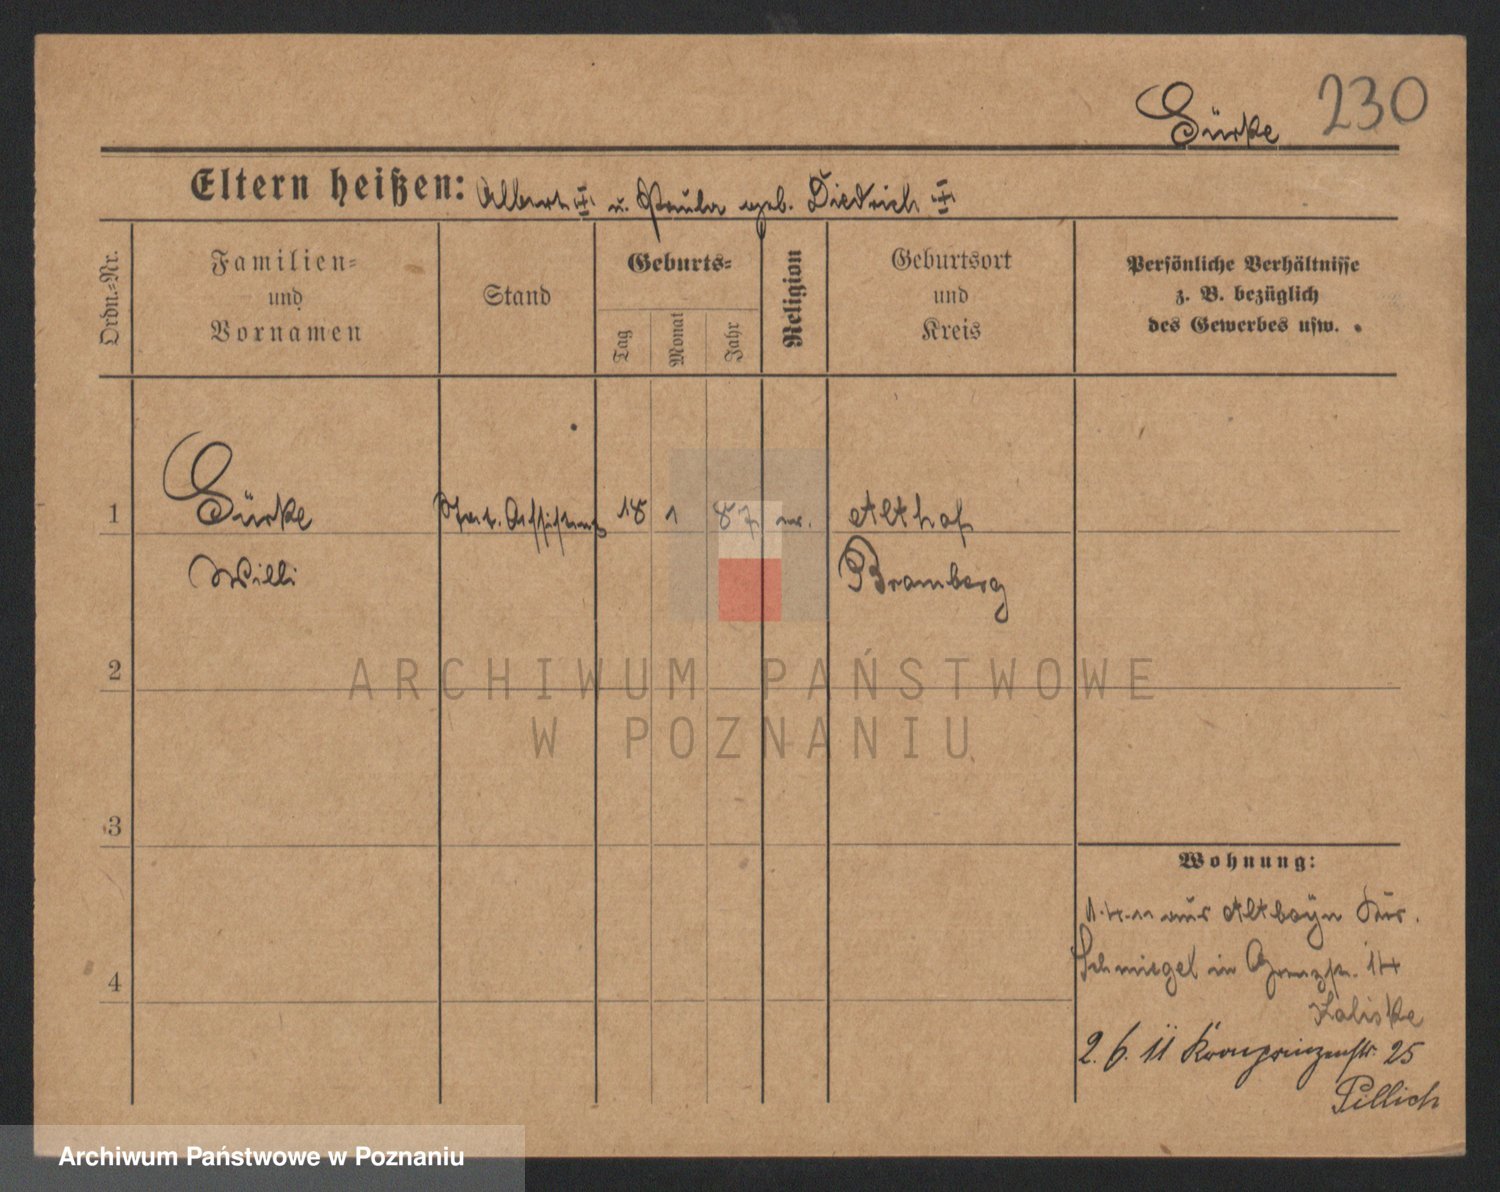 230
Gürke
Eltern heißen: Albert u. Paula geb. Diedrich
Ordn.-Nr.
Familien-
und
Vornamen
Stand
Geburts-
Tag
Monat
Jahr
Religion
Geburtsort
und
Kreis
Persönliche Verhältnisse
z. B. bezüglich
des Gewerbes usw.
1
Gürke
Willi
Assistent
18
1
87
Althof
Bromberg
2
3
4
Wohnung:
aus Altboyn Kr.
Schmiegel in Grenzstr. 14
Zaliske
2. 6. 11 Kronprinzenstr. 25
Pillich
ARCHIWUM PAŃSTWOWE
W POZNANIU
Archiwum Państwowe w Poznaniu